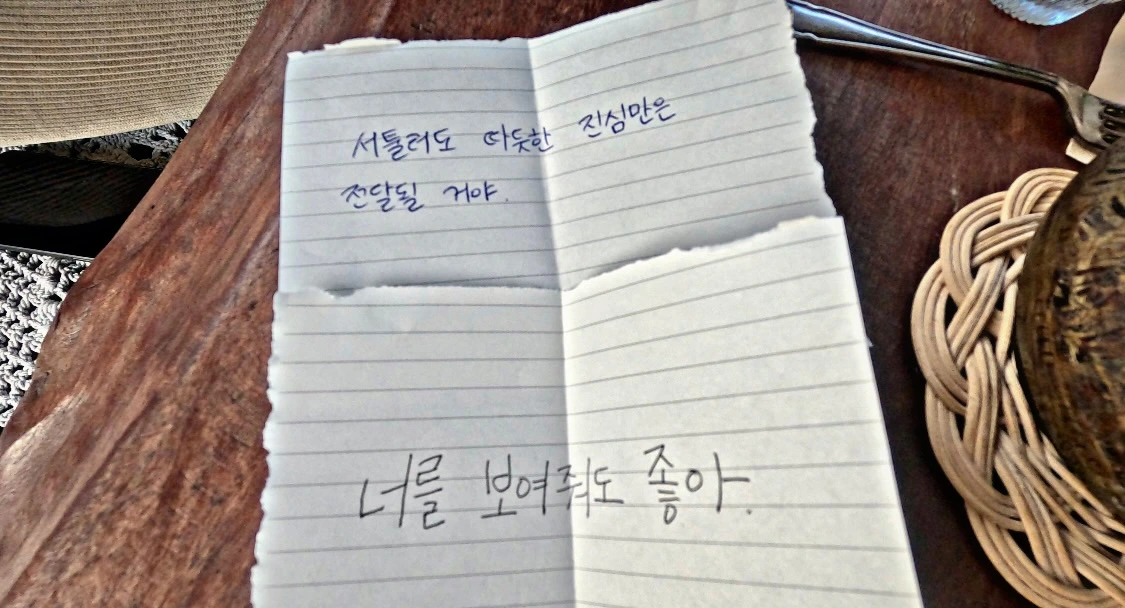 서툴러도 따듯한 진심만은
전달될 거야.
너를 보여줘도 좋아.